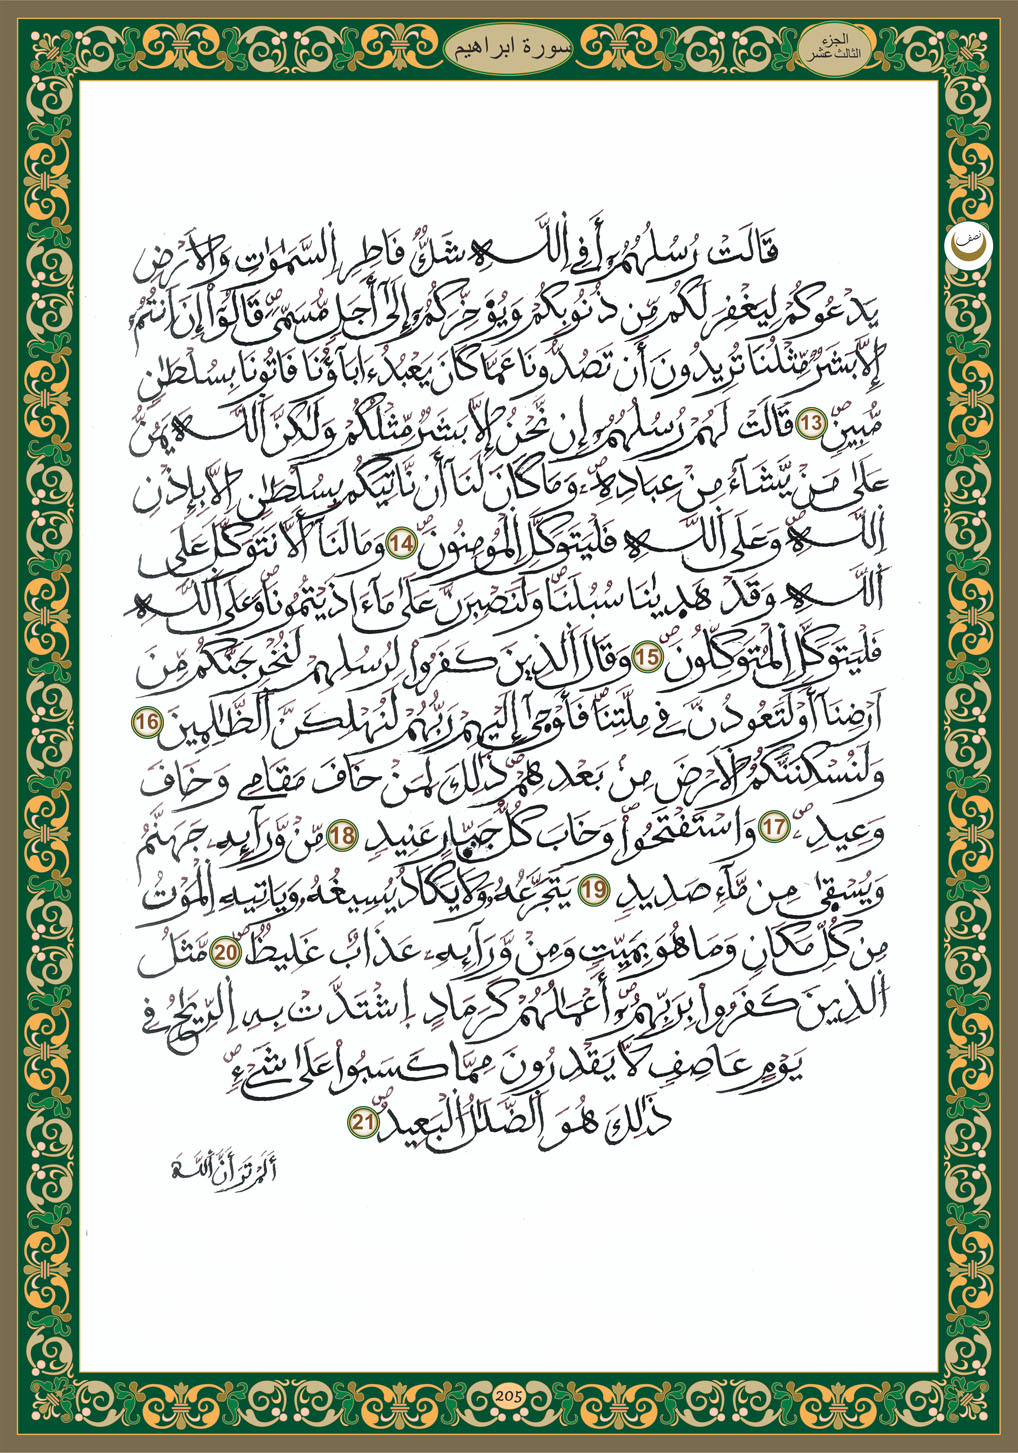 سورة ابراهيم
الجزء
الثالث عشر
نصف
قَالَتْ رُسُلُهُمُۥٓ أَفِے اِ۬للَّهِ شَكّٞ فَاطِرِ اِ۬لسَّمَٰوَٰتِ وَالَارْضِ
يَدْعُوكُمْ لِيَغْفِرَ لَكُم مِّن ذُنُوبِكُمْ وَيُؤَخِّرَكُمُۥٓ إِلَىٰٓ أَجَلٖ مُّسَمّىٗۖ قَالُوٓاْ إِنَ اَنتُمُۥٓ
إِلَّا بَشَرٞ مِّثْلُنَا تُرِيدُونَ أَن تَصُدُّونَا عَمَّا كَانَ يَعْبُدُ ءَابَآؤُنَا فَاتُونَا بِسُلْطَٰنٖ
مُّبِينٖۖ 13 قَالَتْ لَهُمْ رُسُلُهُمُۥٓ إِن نَّحْنُ إِلَّا بَشَرٞ مِّثْلُكُمْ وَلَٰكِنَّ اَ۬للَّهَ يَمُنُّ
عَلَىٰ مَنْ يَّشَآءُ مِنْ عِبَادِهِۦۖ وَمَا كَانَ لَنَآ أَن نَّاتِيَكُم بِسُلْطَٰنٍ اِلَّا بِإِذْنِ
اِ۬للَّهِۖ وَعَلَى اَ۬للَّهِ فَلْيَتَوَكَّلِ اِ۬لْمُومِنُونَۖ 14 وَمَا لَنَآ أَلَّا نَتَوَكَّلَ عَلَى
اَ۬للَّهِ وَقَدْ هَد۪يٰنَا سُبُلَنَاۖ وَلَنَصْبِرَنَّ عَلَىٰ مَآ ءَاذَيْتُمُونَاۖ وَعَلَى اَ۬للَّهِ
فَلْيَتَوَكَّلِ اِ۬لْمُتَوَكِّلُونَۖ 15 وَقَالَ اَ۬لذِينَ كَفَرُواْ لِرُسُلِهِمْ لَنُخْرِجَنَّكُم مِّنَ
اَرْضِنَآ أَوْ لَتَعُودُنَّ فِے مِلَّتِنَاۖ فَأَوْح۪يٰٓ إِلَيْهِمْ رَبُّهُمْ لَنُهْلِكَنَّ اَ۬لظَّٰلِمِينَ 16
وَلَنُسْكِنَنَّكُمُ اُ۬لَارْضَ مِنۢ بَعْدِهِمْۖ ذَٰلِكَ لِمَنْ خَافَ مَقَامِے وَخَافَ
وَعِيدِۦۖ 17 وَاسْتَفْتَحُواْ وَخَابَ كُلُّ جَبّ۪ارٍ عَنِيدٖ 18 مِّنْ وَّرَآئِهِۦ جَهَنَّمُ
وَيُسْق۪يٰ مِن مَّآءٖ صَدِيدٖ 19 يَتَجَرَّعُهُۥ وَلَا يَكَادُ يُسِيغُهُۥ وَيَاتِيهِ اِ۬لْمَوْتُ
مِن كُلِّ مَكَانٖ وَمَا هُوَ بِمَيِّتٖۖ وَمِنْ وَّرَآئِهِۦ عَذَابٌ غَلِيظٞۖ 20 مَّثَلُ
اُ۬لذِينَ كَفَرُواْ بِرَبِّهِمُۥٓۖ أَعْمَٰلُهُمْ كَرَمَادٍ اِ۪شْتَدَّتْ بِهِ اِ۬لرِّيَٰحُ فِے
يَوْمٍ عَاصِفٖ لَّا يَقْدِرُونَ مِمَّا كَسَبُواْ عَلَىٰ شَےْءٖۖ
ذَٰلِكَ هُوَ اَ۬لضَّلَٰلُ اُ۬لْبَعِيدُۖ 21
أَلَمْ تَرَ أَنَّ اَ۬للَّهَ
205